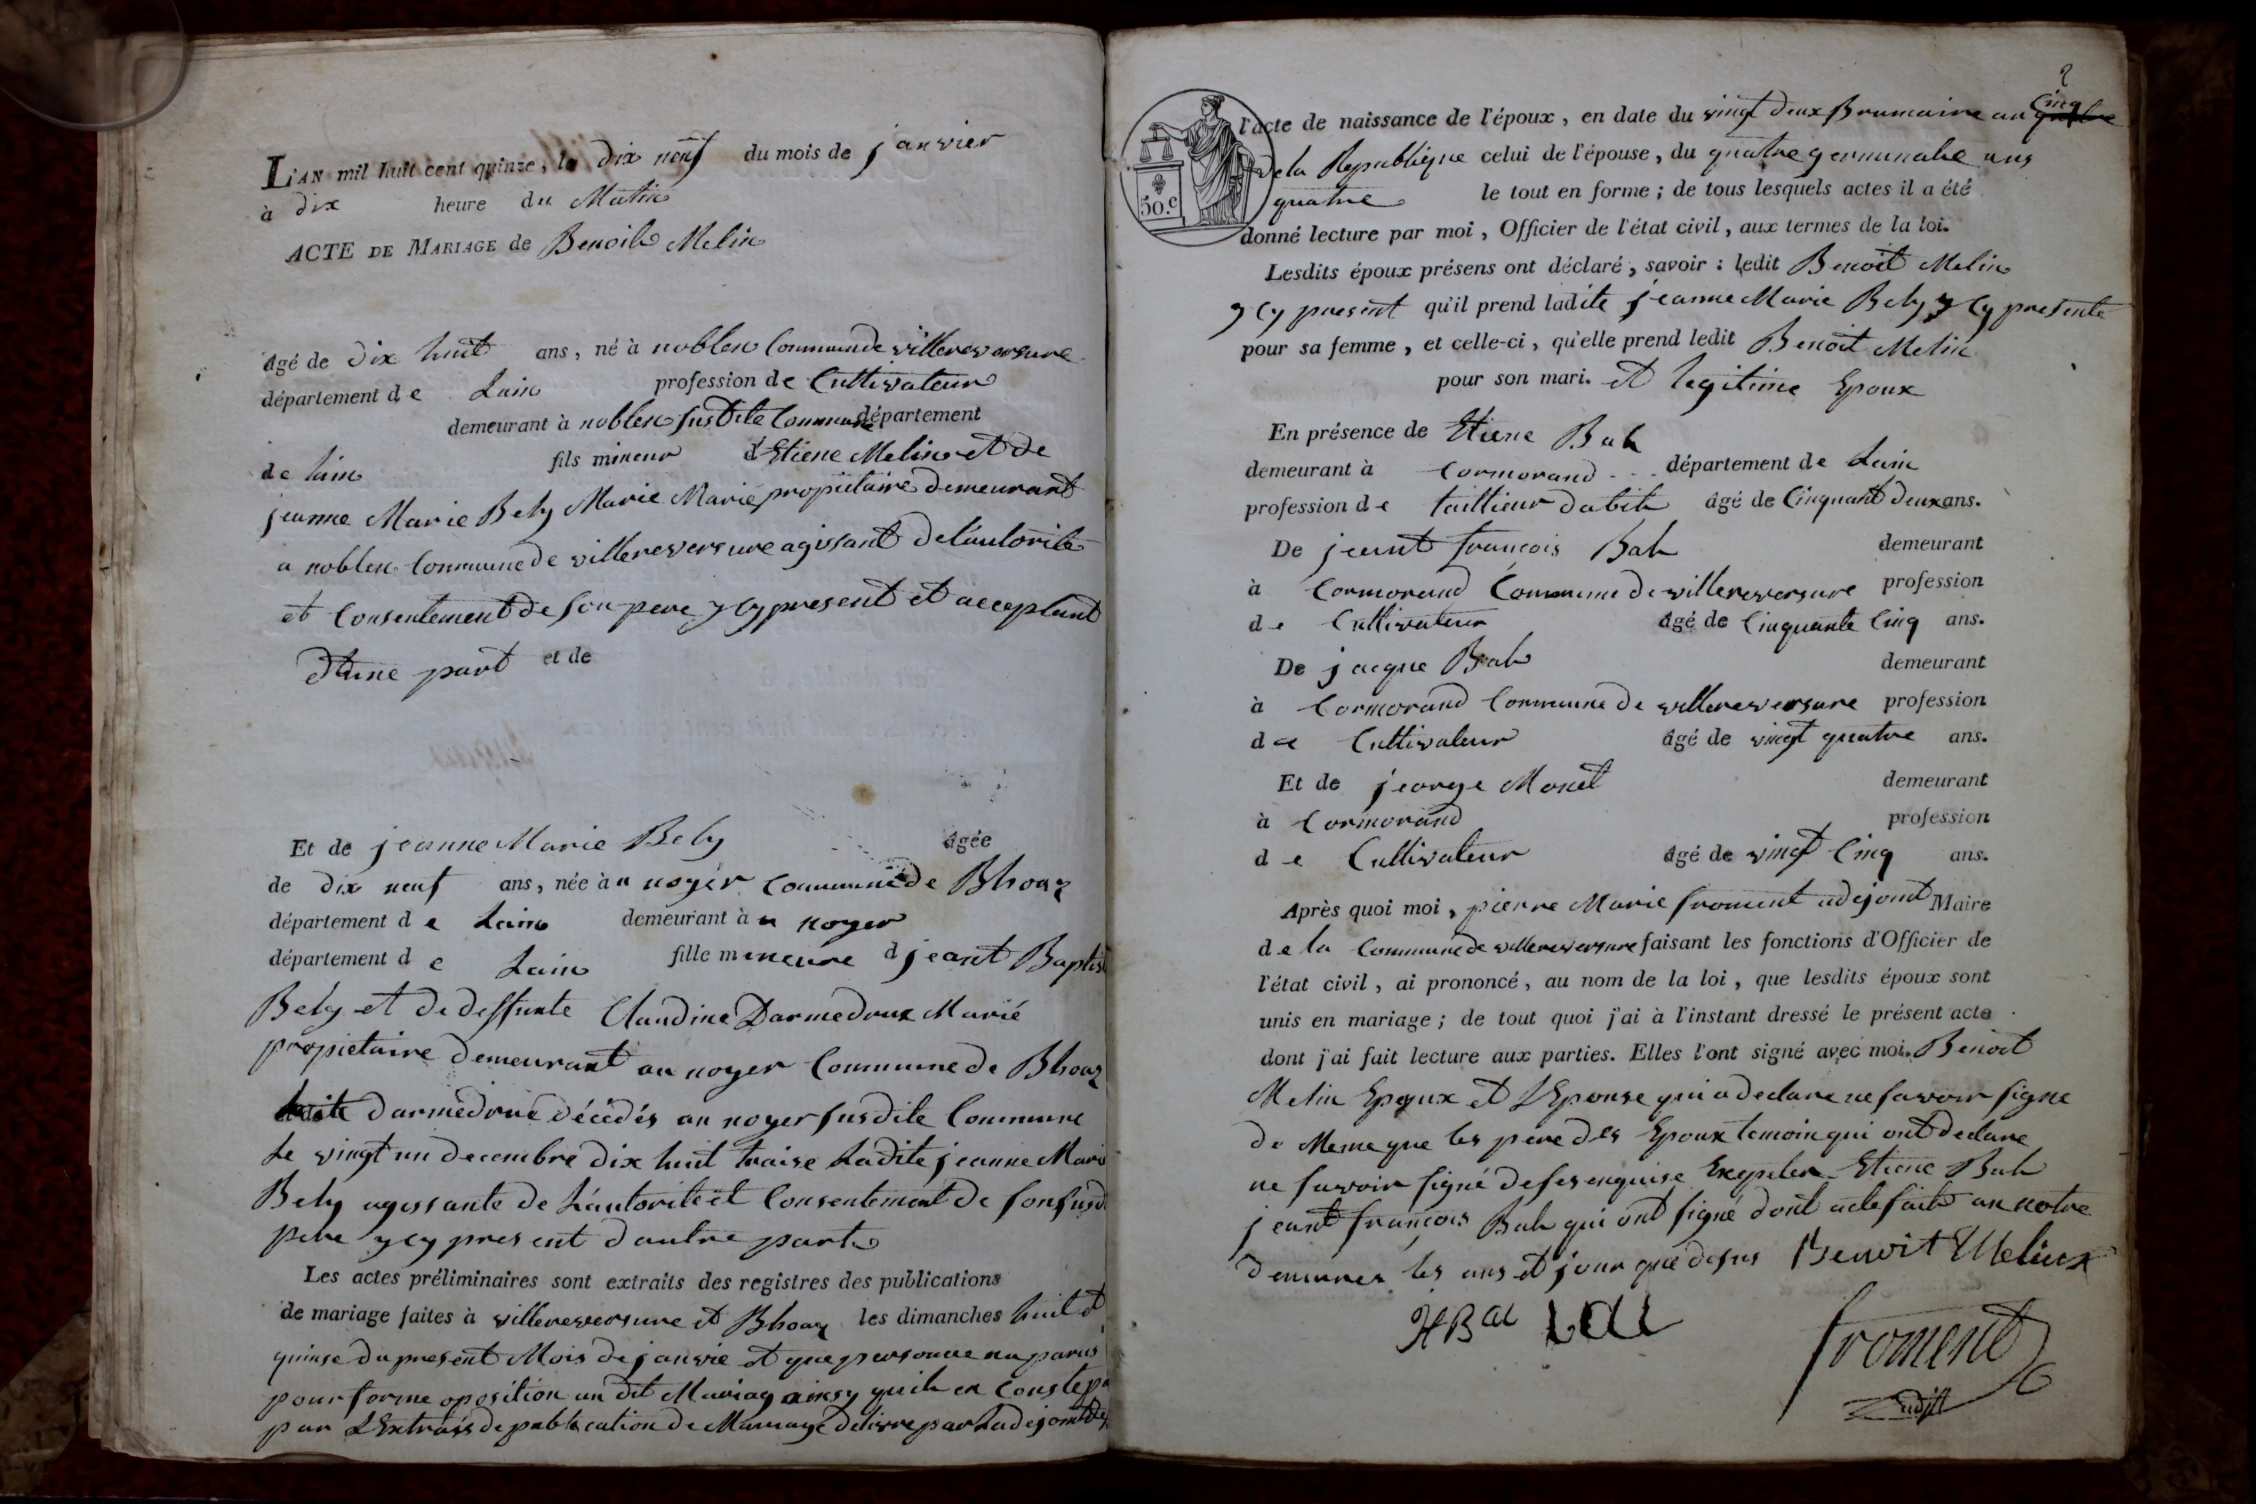 L'AN mil huit cent quinze, le dix neuf du mois de janvier
à dix heure du Matin
ACTE DE MARIAGE de Benoit Melin
âgé de dix huit ans, né à noblen Commune de villereversure
département de Lain profession de Cultivateur
demeurant à noblen susdite Commune département
de lain fils mineur d'Etiene Melin et de
jeanne Marie Bely Marie Marié propiétaire demeurant
a noblen Commune de villereversure agissant de lautorité
et Consentement de son pere y cy present et acceptant
d'une part et de
Et de jeanne Marie Bely âgée
de dix neuf ans, née à u noyér Commune de Bhoaz
département de Lain demeurant à u noyer
département de Lain fille mineure d jeant Baptist
Bely et de deffunte Claudine Darmedrux Marié
propietaire demeurant au noyer Commune de Bhoaz
Darmedrux décédés au noyer susdite Commune
Le vingt un decembre dix huit traise Ladite jeanne Mari
Bely agissante de Lautorité et Consentement de son susd
pere y cy present dautre part
Les actes préliminaires sont extraits des registres des publications
de mariage faites à villereversure et Bhoaz les dimanches huit et
quinse du present Mois de janvie et que personne na parus
pour forme oposition au dit Mariag ainsy quil en Conste pa
par L'Extrais de publication de Marriage delivre par Ladejoint de
2
l'acte de naissance de l'époux, en date du vingt deux Brumaire an Cinq quatre
de la Republique celui de l'épouse, du quatre germinale ans
quatre le tout en forme; de tous lesquels actes il a été
50.c
donné lecture par moi, Officier de l'état civil, aux termes de la loi.
Lesdits époux présens ont déclaré, savoir: ledit Benoit Melin
y cy present qu'il prend ladite jeanne Marie Bely y cy presente
pour sa femme, et celle-ci, qu'elle prend ledit Benoit Melin
pour son mari. et legitime Epoux
En présence de Etiene Bal
demeurant à Cormorand département de Lain
profession de taillieur dabit âgé de Cinquant deux ans.
De jeant françois Bal demeurant
à Cormorand Commune de villereversure profession
de Cultivateur âgé de Cinquante Cinq ans.
De jacque Bal demeurant
à Cormorand Commune de villereversure profession
de Cultivateur âgé de vingt quatre ans.
Et de jeorge Monet demeurant
à Cormorand profession
de Cultivateur âgé de vingt Cinq ans.
Après quoi moi, pierre Marie froment adejont Maire
de la Commune de villereversure faisant les fonctions d'Officier de
l'état civil, ai prononcé, au nom de la loi, que lesdits époux sont
unis en mariage; de tout quoi j'ai à l'instant dressé le présent acte
dont j'ai fait lecture aux parties. Elles l'ont signé avec moi. Benoit
Melin Epoux et L'Epouse qui a declare ne savoir signe
de Meme que les pere des Epoux temoin qui ont declare
ne savoir signé de ses enquise Exepter Etiene Bal
jeant françois Bal qui ont signé dont acte fait an notre
demeure les ans et jour que desus Benoit Melin
froment
adjt